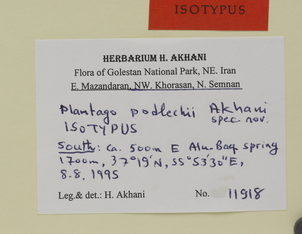 ISOTYPUS
HERBARIUM H. AKHANI
Flora of Golestan National Park, NE. Iran
E. Mazandaran, NW. Khorasan, N. Semnan
Plantago podlechii Akhani
spec. nov.
ISOTYPUS
South: ca. 500m E Alu-Baq spring
1700m, 37°19'N, 55°53'30"E,
8.8.1995
Leg.& det.: H. Akhani No. 11918